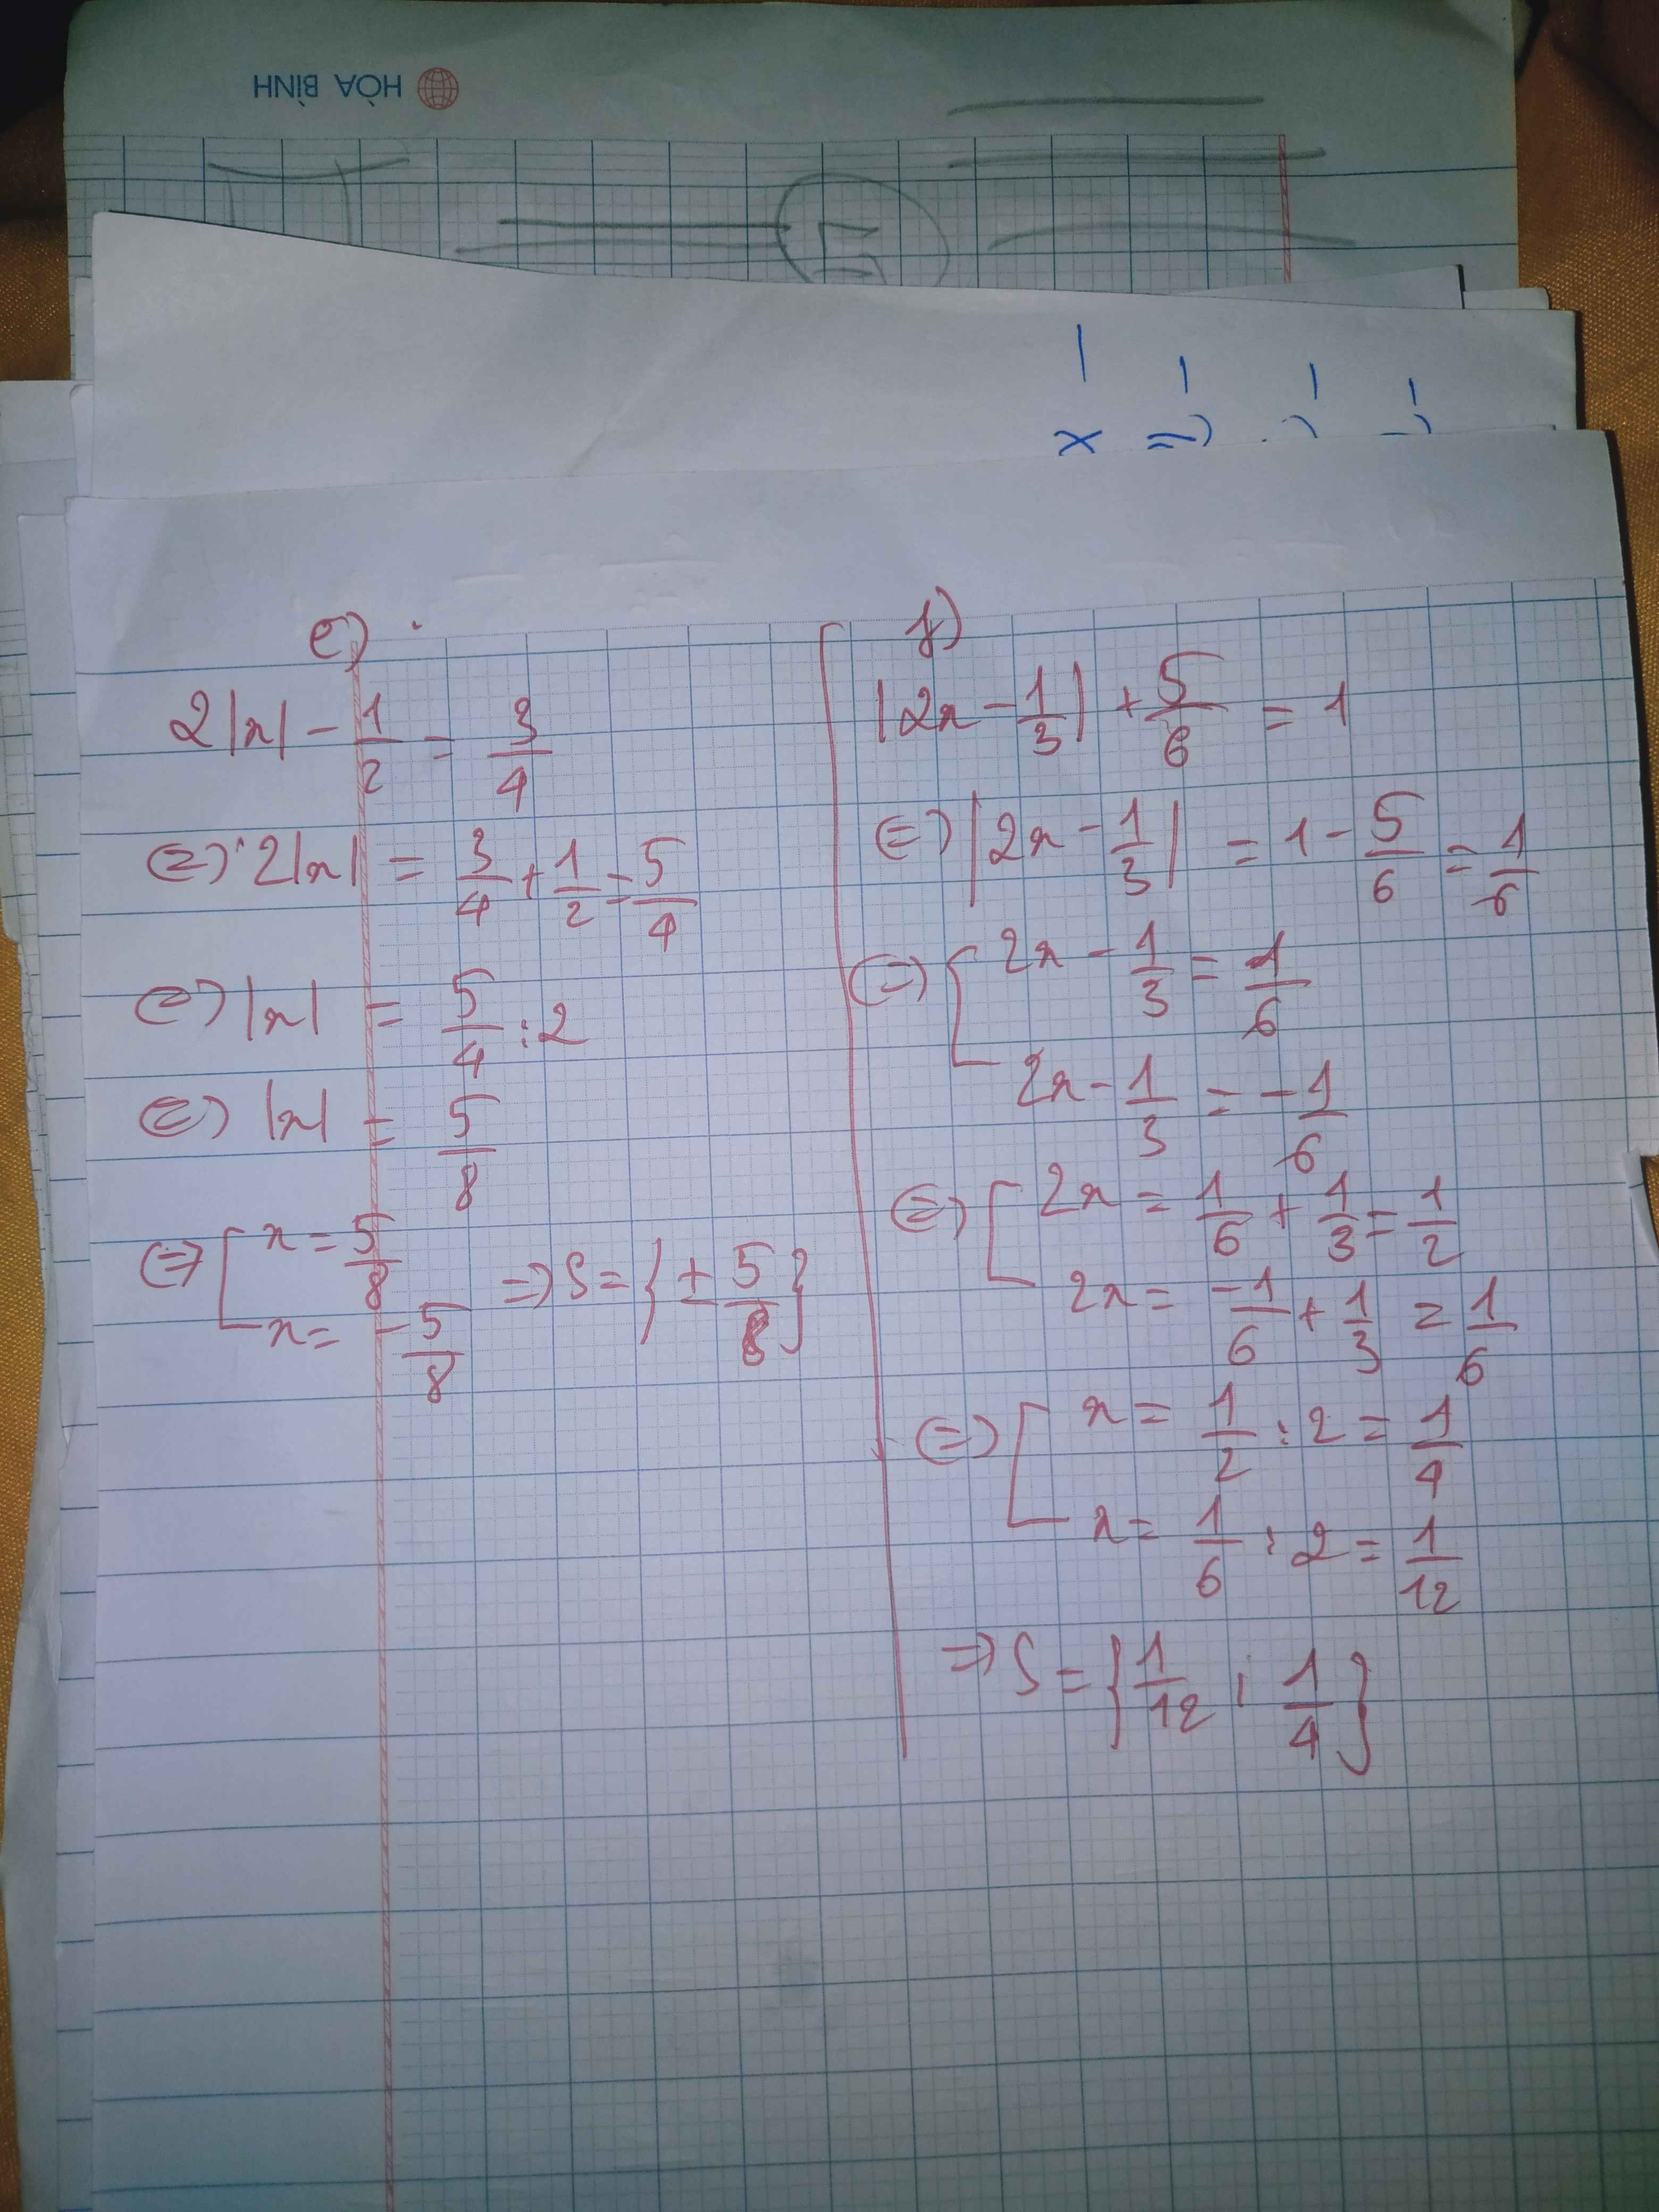 HÒA BÌNH
x
e)
2|x| - 1/2 = 3/4
⇔ 2|x| = 3/4 + 1/2 = 5/4
⇔ |x| = 5/4 : 2
⇔ |x| = 5/8
⇔ [ x = 5/8
x = -5/8
⇒ S = { ± 5/8 }
f)
|2x - 1/3| + 5/6 = 1
⇔ |2x - 1/3| = 1 - 5/6 = 1/6
⇔ [ 2x - 1/3 = 1/6
2x - 1/3 = -1/6
⇔ [ 2x = 1/6 + 1/3 = 1/2
2x = -1/6 + 1/3 = 1/6
⇔ [ x = 1/2 : 2 = 1/4
x = 1/6 : 2 = 1/12
⇒ S = { 1/12 ; 1/4 }